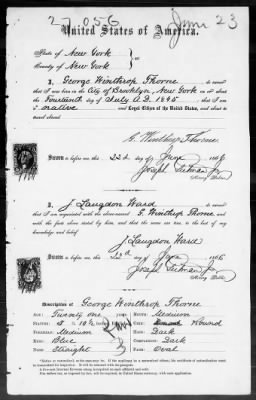 27,056
June 23
United States of America.
State of New York
County of New York
I, George Winthrop Thorne do swear
that I was born in the City of Brooklyn, New York on or about
the Fourteenth day of July A.D. 1845 that I am a
native and Loyal Citizen of the United States, and about to
travel abroad.
G. Winthrop Thorne
Sworn to before me this 22d day of June 186
Joseph
Notary Public
I, J Langdon Ward do swear
that I am acquainted with the above-named G. Winthrop Thorne, and
with the facts above stated by him, and that the same are true to the best of my
knowledge and belief.
J Langdon Ward
Sworn to before me this 22d day of June 186
Joseph
Notary Public
Description of George Winthrop Thorne
Age: Twenty one years
Stature: 5 10½
Forehead: Medium
Eyes: Blue
Nose: Straight
Mouth: Medium
Chin: Round
Hair: Dark
Complexion: Dark
Face: Oval